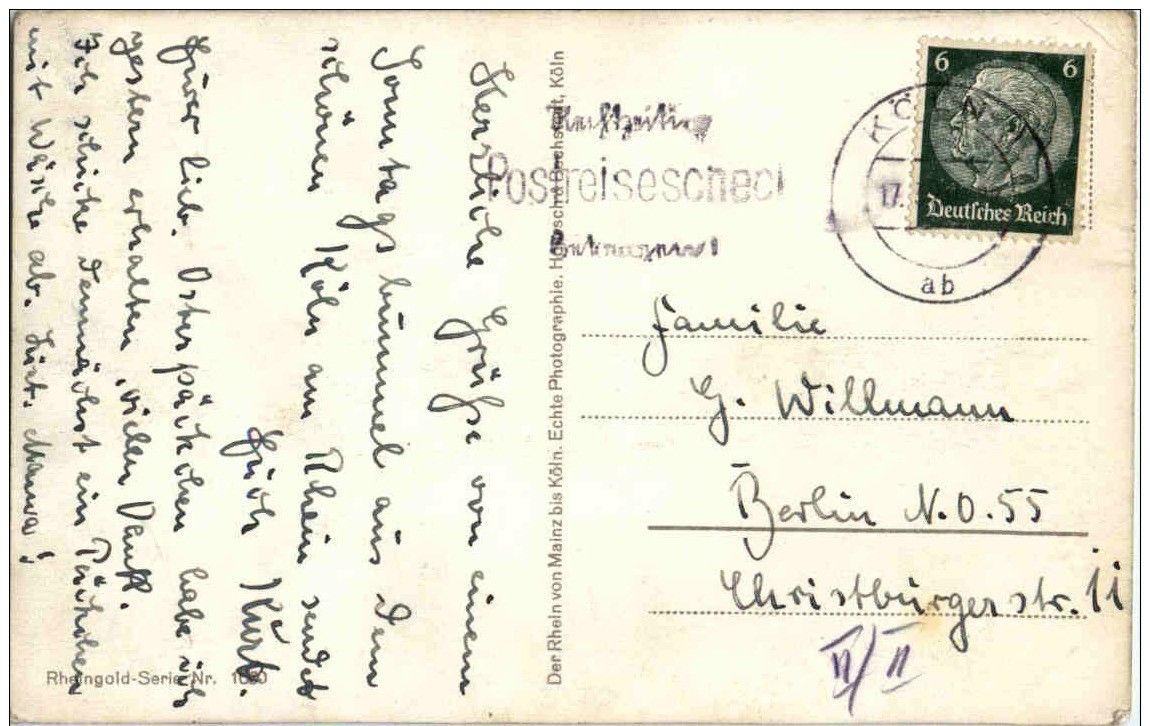 Herzliche Grüße von einem
Sonntagsbummel aus dem
schönen Köln am Rhein sendet
Euch Kurt.
Euer lieb. Osterpäckchen habe ich
gestern erhalten, vielen Dank.
Ich schicke demnächst ein Päckchen
mit Wäsche ab. Mama!
Rheingold-Serie Nr.
Der Rhein von Mainz bis Köln. Echte Photographie. Hoursch & Bechstedt, Köln
Rechtzeitig
Postreisescheck
KÖLN
17.
ab
6 6
Deutsches Reich
Familie
G. Willmann
Berlin N.O.55
Christburgerstr. 11
II/II